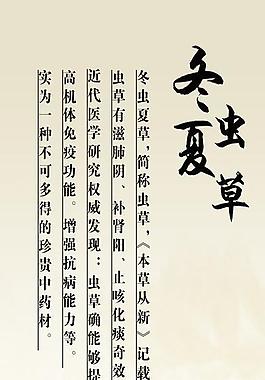 冬虫夏草
冬虫夏草，简称虫草，《本草从新》记载
虫草有滋肺阴、补肾阳、止咳化痰奇效
近代医学研究权威发现：虫草确能够提
高机体免疫功能。增强抗病能力等。
实为一种不可多得的珍贵中药材。